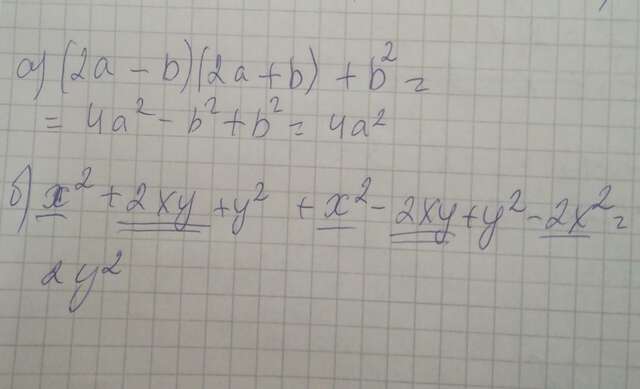 а) (2a - b)(2a + b) + b² =
= 4a² - b² + b² = 4a²
б) x² + 2xy + y² + x² - 2xy + y² - 2x² =
2y²